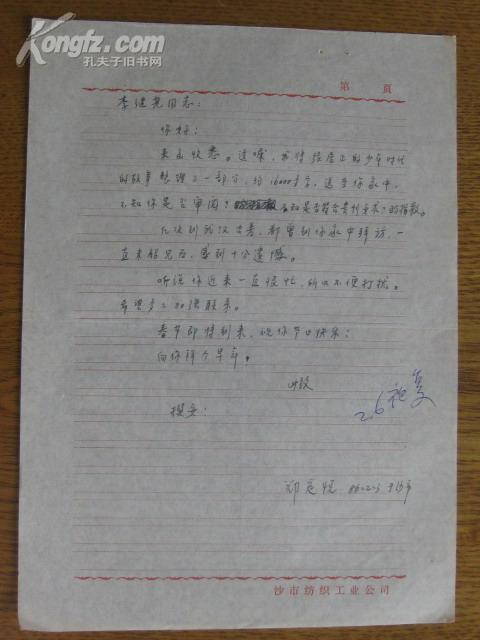 Kongfz.com
孔夫子旧书网
第 頁
李继尧同志：
你好：
来函收悉。这里，我将 的少年时代
的故事整理了一部分，约16000多字，送至你家中，
不知你是否审阅？ 不知是否符合贵刊要求，的指教。
几次到武汉出差，都曾到你家中拜访，一
直未能见面，感到十分遗憾。
听说你近来一直很忙，所以不便打扰。
希望多多 联系。
春节即将到来，祝你节日快乐！
向你拜个早年。
此致
撰安！
2.6 复
邓
沙市纺织工业公司